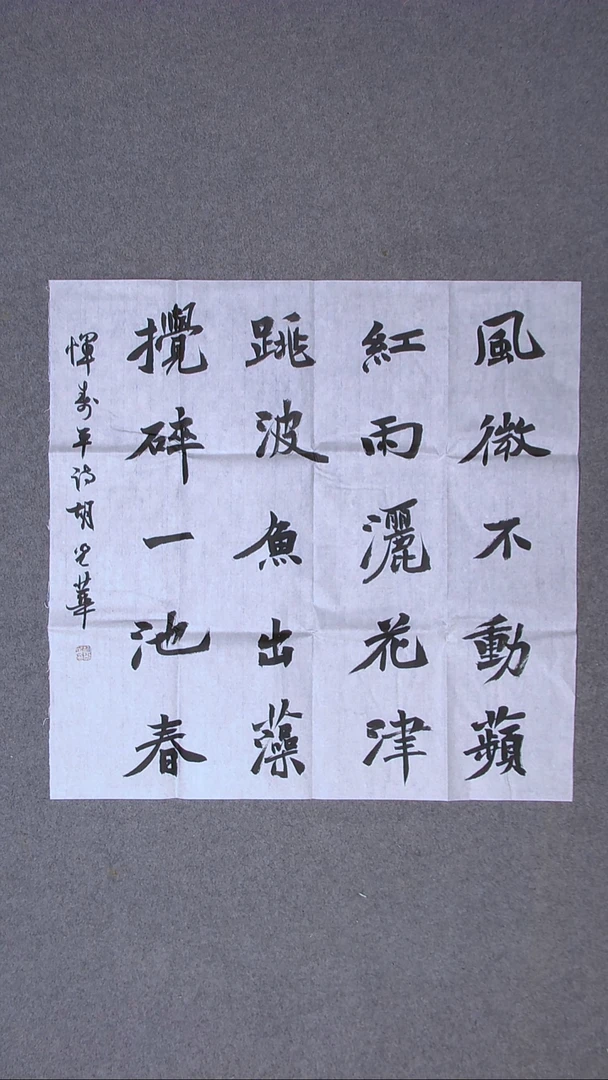 風微不動蘋
紅雨灑花津
跳波魚出藻
攪碎一池春
惲壽平詩胡光華